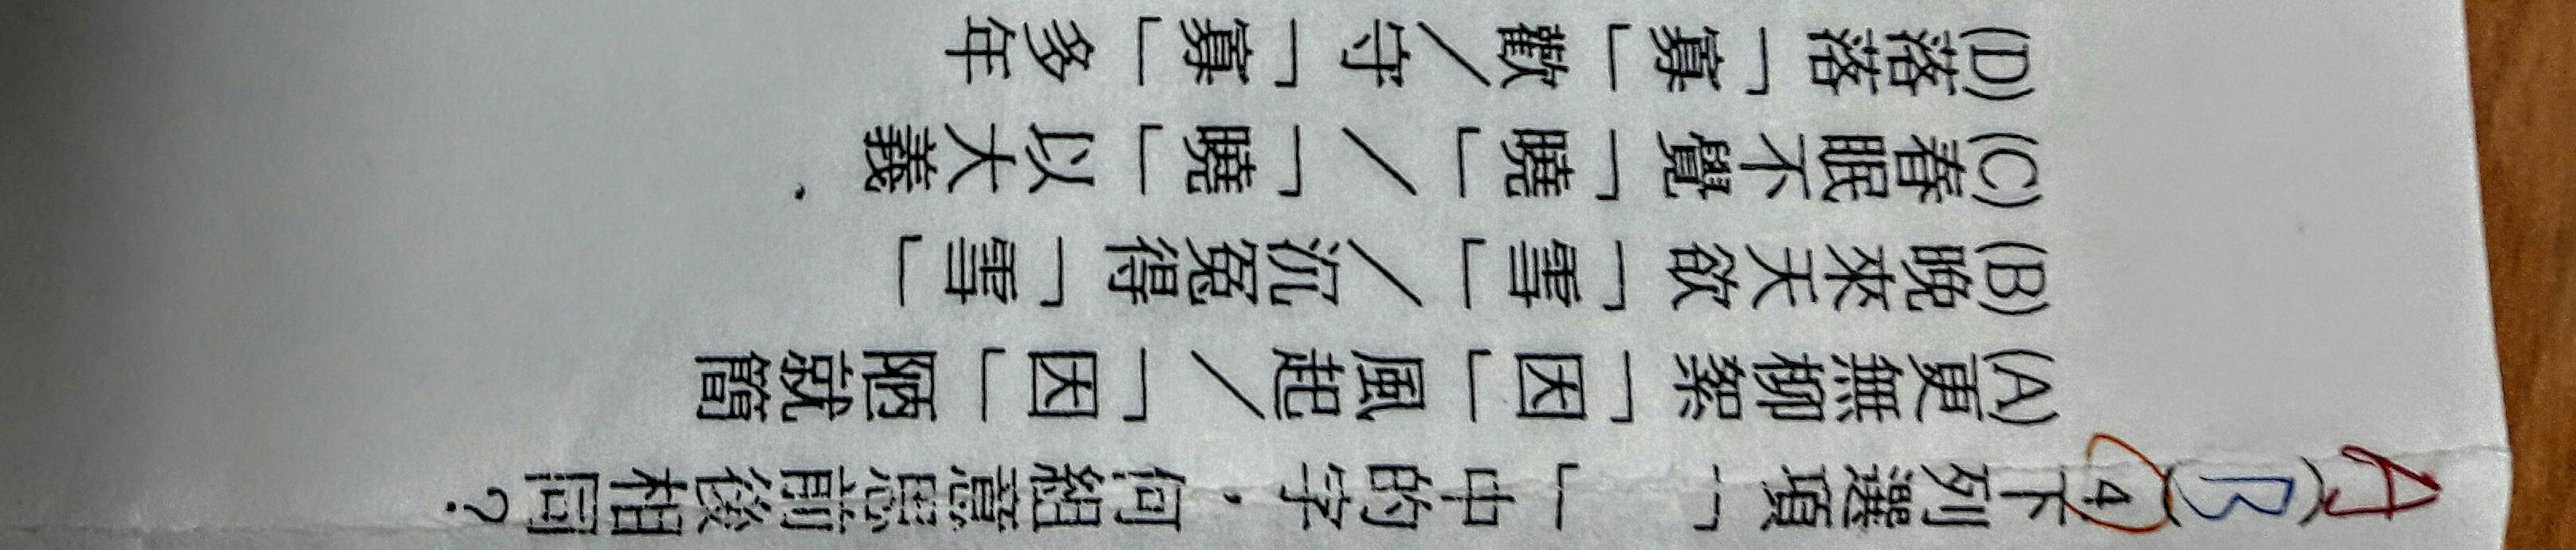 A(B)(4)下列選項「 」中的字，何組意思前後相同？
(A)更無柳絮「因」風起／「因」陋就簡
(B)晚來天欲「雪」／沉冤得「雪」
(C)春眠不覺「曉」／「曉」以大義
(D)落落「寡」歡／守「寡」多年